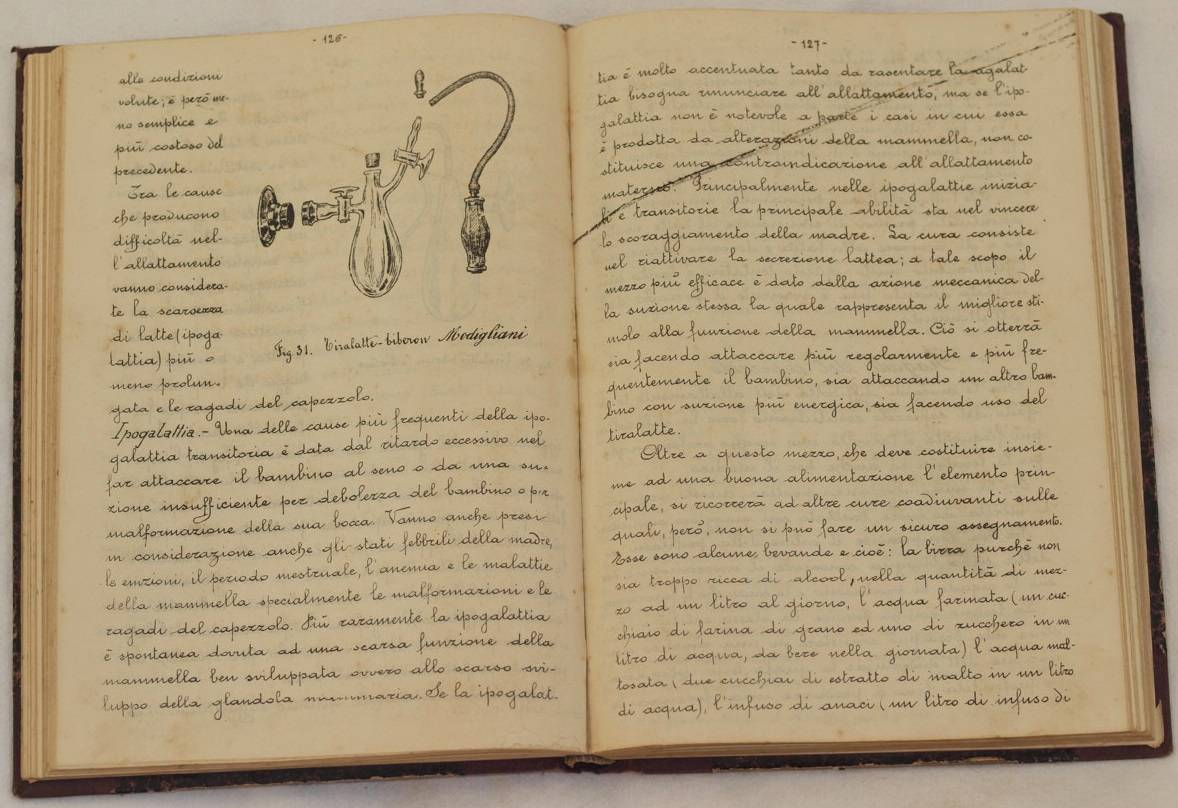 - 126 -
alle condizioni
volute; è però me-
no semplice e
più costoso del
precedente.
Tra le cause
che producono
difficoltà nel-
l'allattamento
vanno considera-
te la scarsezza
di latte (ipoga-
lattia) più o
meno prolun-
gata e le ragadi del capezzolo.
Fig. 31. Tiralatte-biberon Modigliani
Ipogalattia.- Una delle cause più frequenti della ipo-
galattia transitoria è data dal ritardo eccessivo nel
far attaccare il bambino al seno o da una su-
zione insufficiente per debolezza del bambino o per
malformazione della sua bocca. Vanno anche presi
in considerazione anche gli stati febbrili della madre,
le emzioni, il periodo mestruale, l'anemia e le malattie
della mammella specialmente le malformazioni e le
ragadi del capezzolo. Più raramente la ipogalattia
è spontanea dovuta ad una scarsa funzione della
mammella ben sviluppata ovvero allo scarso svi-
luppo della glandola mammaria. Se la ipogalat-
- 127 -
tia è molto accentuata tanto da rasentare la agalat-
tia bisogna rinunciare all'allattamento, ma se l'ipo-
galattia non è notevole a parte i casi in cui essa
è prodotta da alterazioni della mammella, non co-
stituisce una controindicazione all'allattamento
materno. Principalmente nelle ipogalattie inizia-
li e transitorie la principale abilità sta nel vincere
lo scoraggiamento della madre. La cura consiste
nel riattivare la secrezione lattea; a tale scopo il
mezzo più efficace è dato dalla azione meccanica del-
la suzione stessa la quale rappresenta il migliore sti-
molo alla funzione della mammella. Ciò si otterrà
sia facendo attaccare più regolarmente e più fre-
quentemente il bambino, sia attaccando un altro bam-
bino con suzione più energica, sia facendo uso del
tiralatte.
Oltre a questo mezzo, che deve costituire insie-
me ad una buona alimentazione l'elemento prin-
cipale, si ricorrerà ad altre cure coadiuvanti sulle
quali, però, non si può fare un sicuro assegnamento.
Esse sono alcune bevande e cioè: la birra purchè non
sia troppo ricca di alcool, nella quantità di mez-
zo ad un litro al giorno, l'acqua farinata (un cuc-
chiaio di farina di grano ed uno di zucchero in un
litro di acqua, da bere nella giornata) l'acqua mal-
tosata (due cucchiai di estratto di malto in un litro
di acqua), l'infuso di anaci (un litro di infuso di